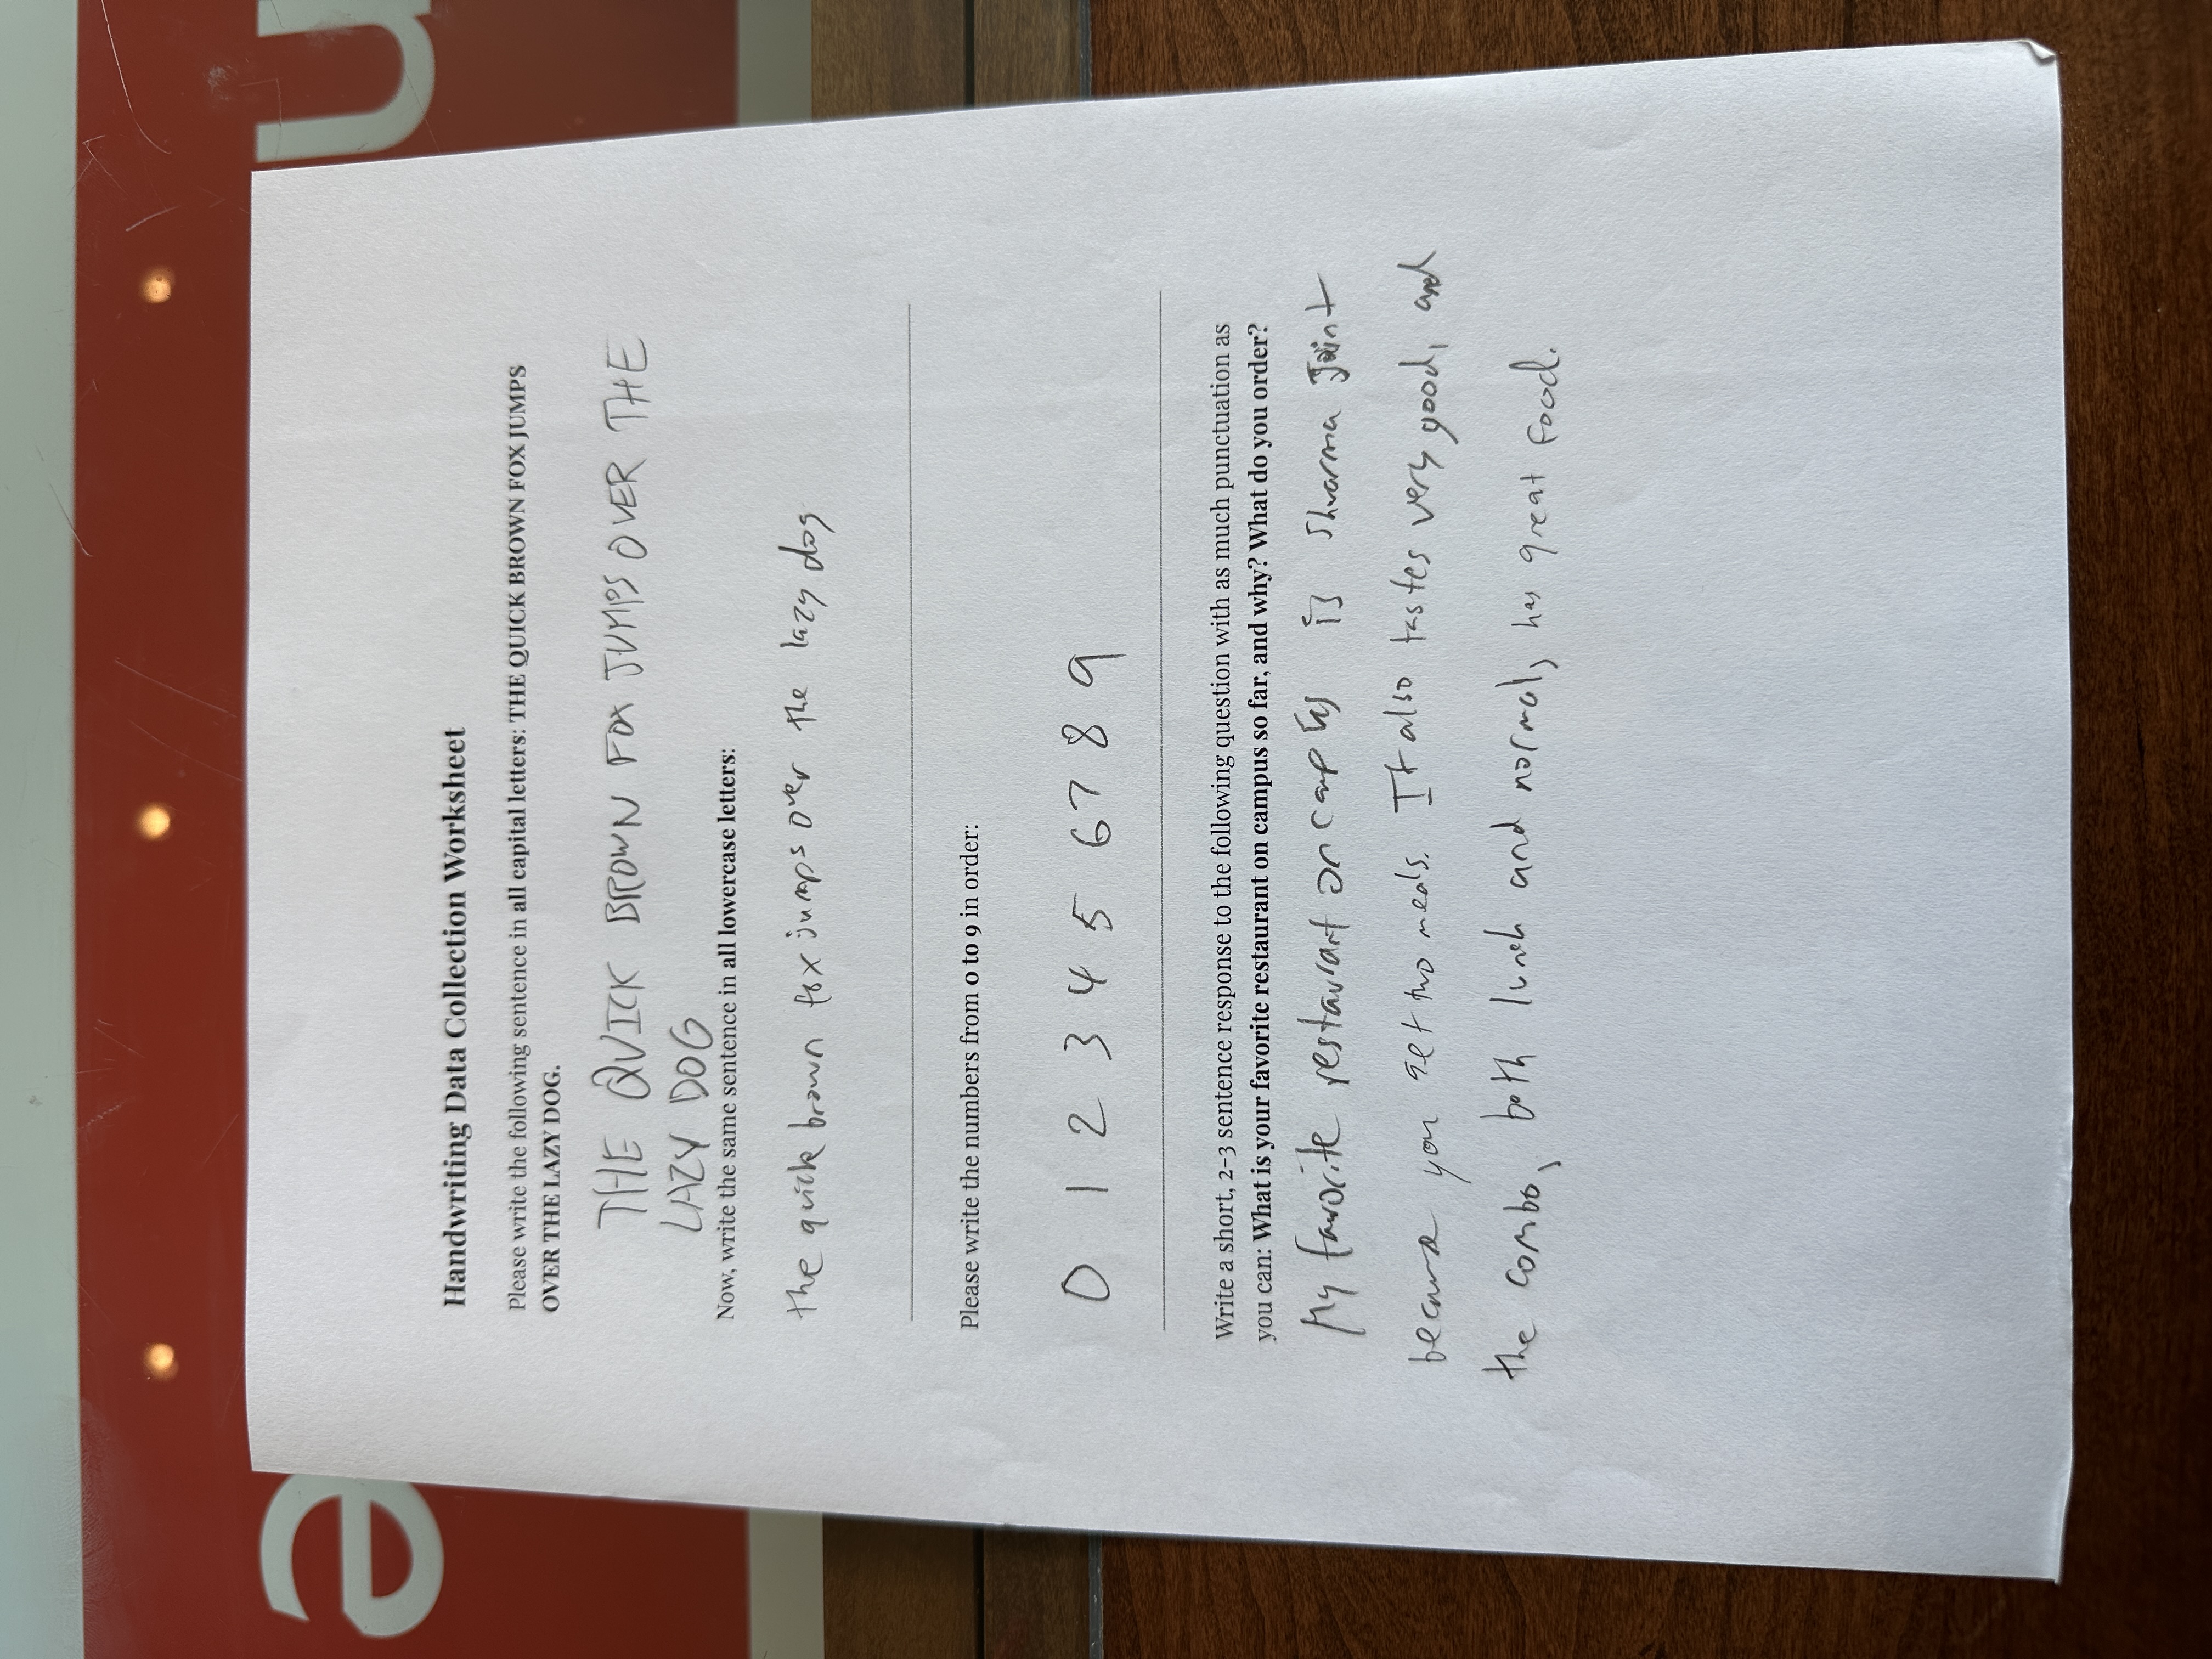 Handwriting Data Collection Worksheet
Please write the following sentence in all capital letters: THE QUICK BROWN FOX JUMPS
OVER THE LAZY DOG.
THE QUICK BROWN FOX JUMPS OVER THE
LAZY DOG
Now, write the same sentence in all lowercase letters:
the quick brown fox jumps over the lazy dog
Please write the numbers from 0 to 9 in order:
0 1 2 3 4 5 6 7 8 9
Write a short, 2-3 sentence response to the following question with as much punctuation as
you can: What is your favorite restaurant on campus so far, and why? What do you order?
My favorite restaurant on campus is Shwarma Joint
because you get two meals. It also tastes very good, and
the combo, both lunch and normal, has great food.